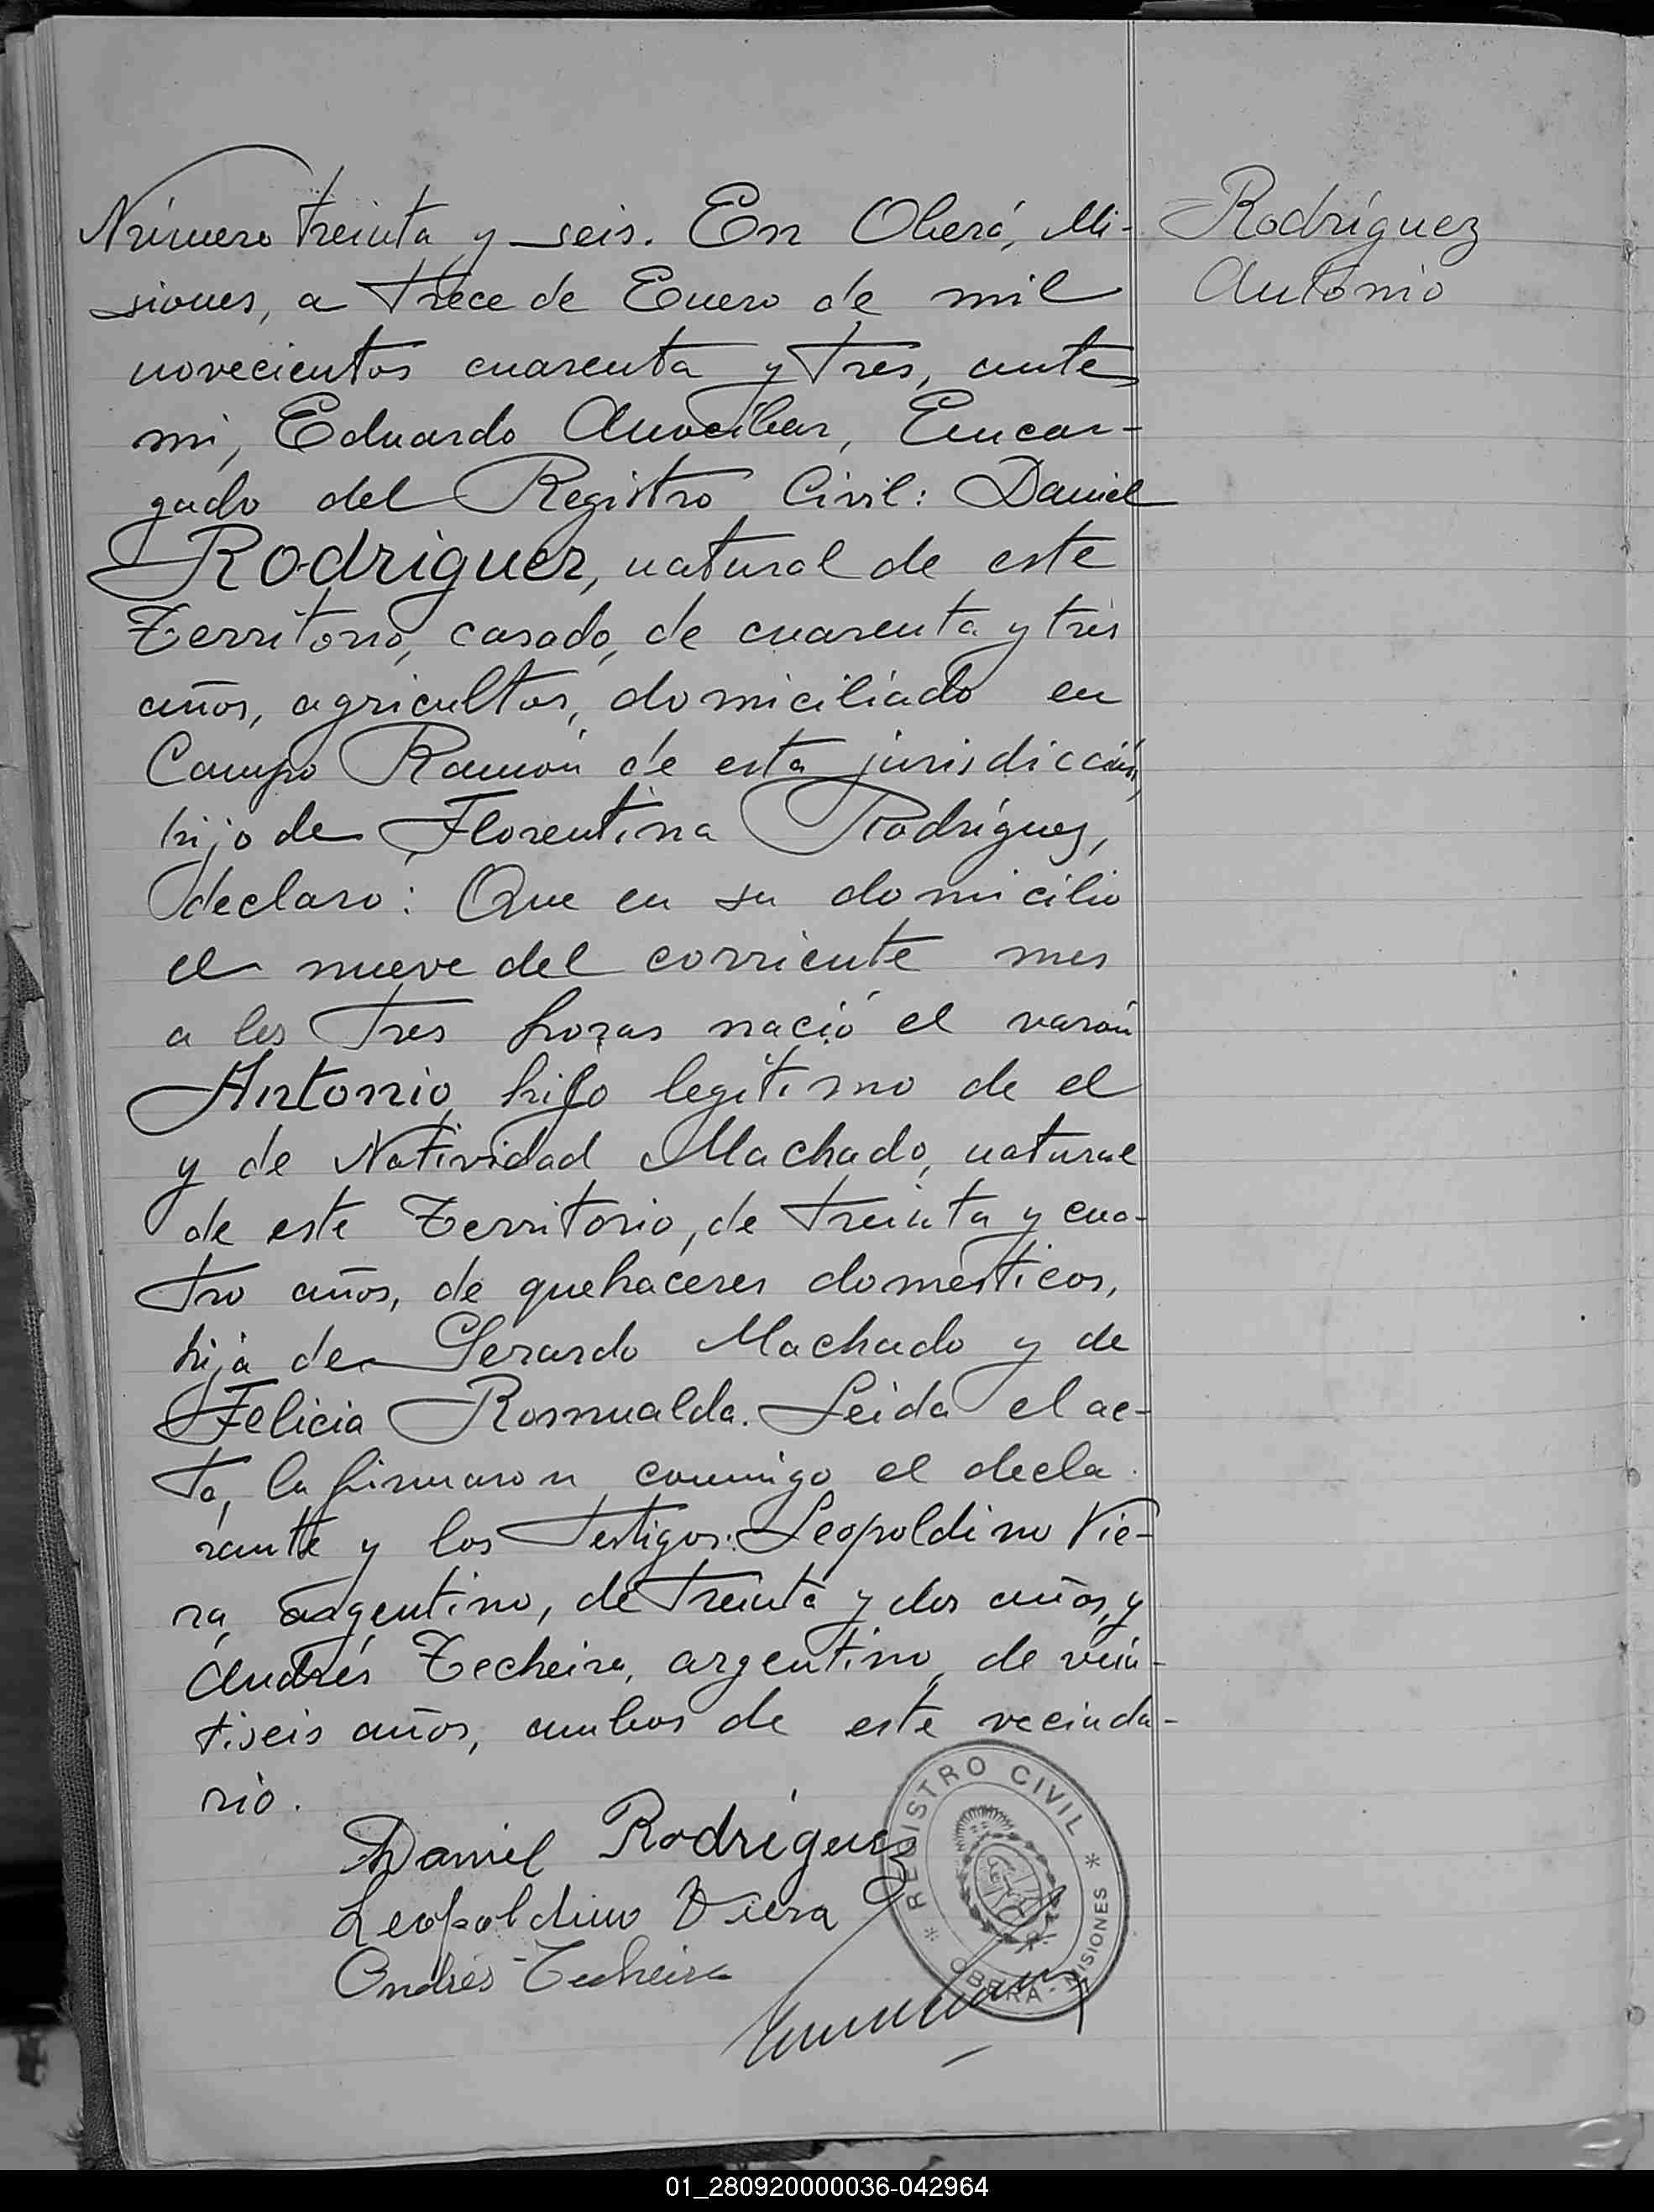 Número treinta y seis. En Oberá, Mi-
siones, a trece de Enero de mil
novecientos cuarenta y tres, ante
mi, Eduardo Anocíbar, Encar-
gado del Registro Civil: Daniel
Rodriguez, natural de este
Territorio, casado, de cuarenta y tres
años, agricultor, domiciliado en
Campo Ramón de esta jurisdicción,
hijo de Florentina Rodríguez,
declaro: Que en su domicilio
el nueve del corriente mes
a las tres horas nació el varón
Antonio, hijo legítimo de el
y de Natividad Machado, natural
de este Territorio, de treinta y cua-
tro años, de quehaceres domésticos,
hija de Gerardo Machado y de
Felicia Romualda. Leida el ac-
ta, la firmaron conmigo el decla
rante y los testigos: Leopoldino Vie-
ra, argentino, de treinta y dos años, y
Andrés Techeira, argentino, de vein-
tiseis años, ambos de este vecinda-
rio.
Rodríguez
Antonio
Daniel Rodriguez
Leopoldino Viera
Andrés Techeira
* REGISTRO CIVIL *
OBERA - MISIONES
01_280920000036-042964